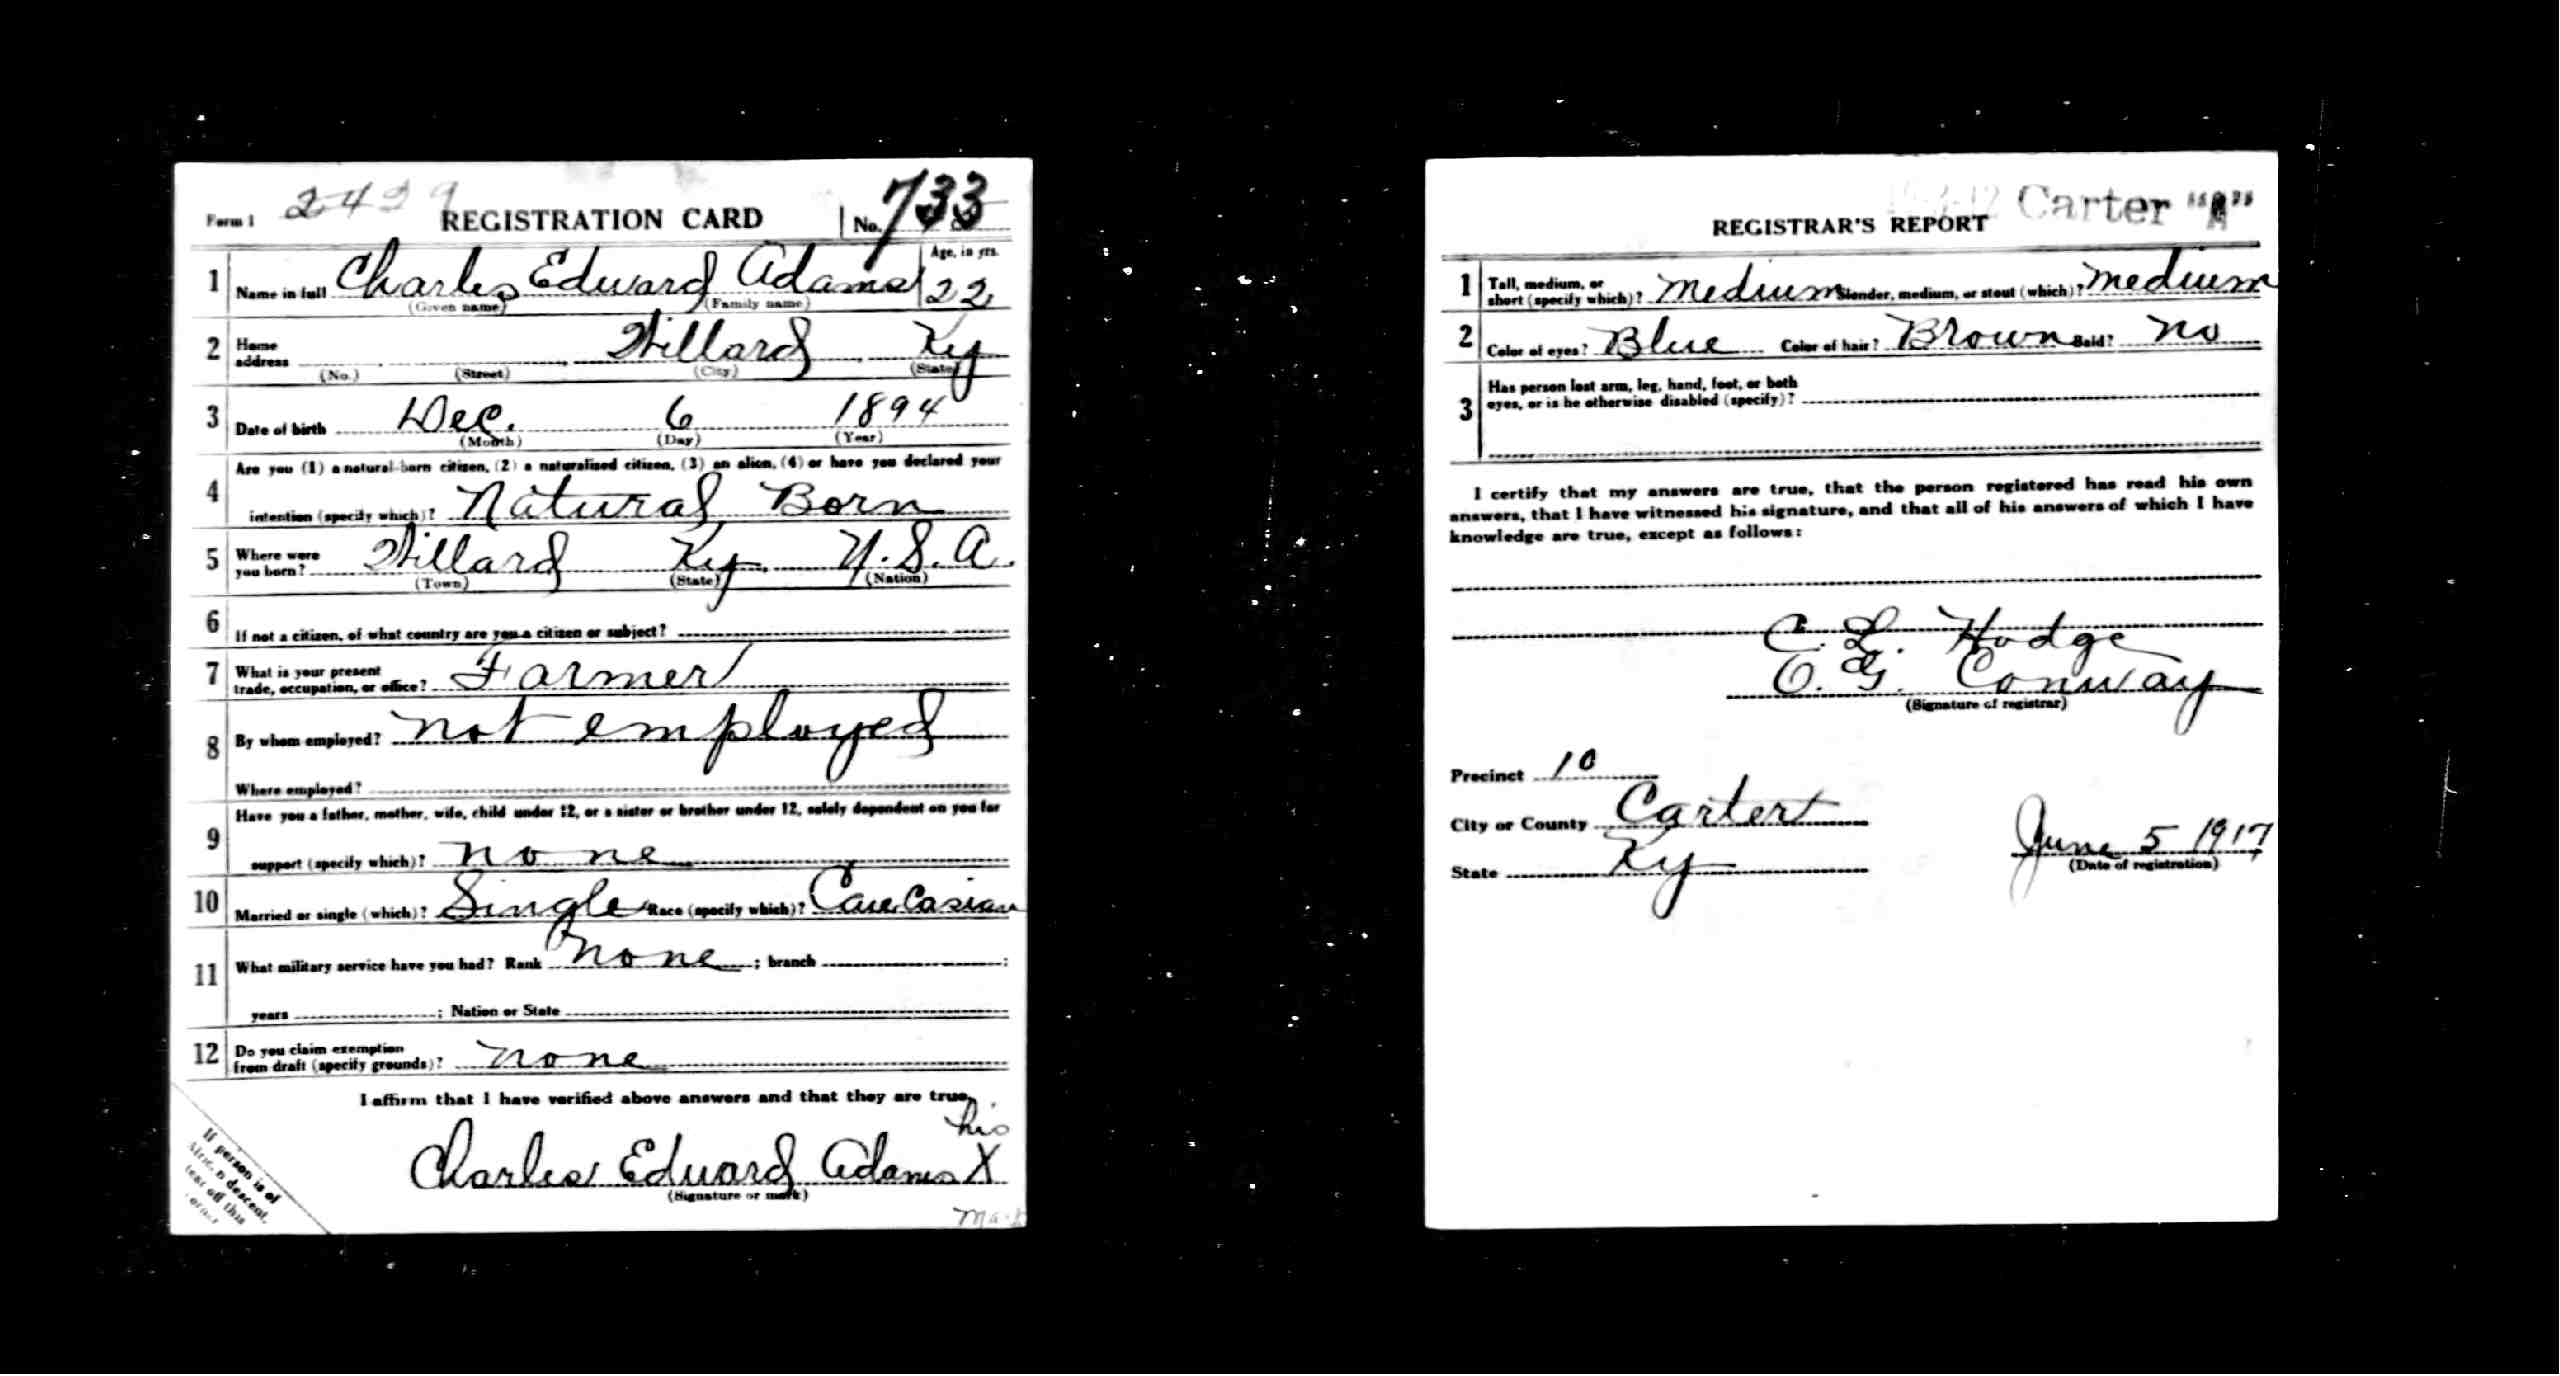 Form 1 2429 REGISTRATION CARD No. 733
1 Name in full Charles Edward Adams Age, in yrs. 22
(Given name) (Family name)
2 Home address Willard Ky
(No.) (Street) (City) (State)
3 Date of birth Dec. 6 1894
(Month) (Day) (Year)
4 Are you (1) a natural-born citizen, (2) a naturalized citizen, (3) an alien, (4) or have you declared your
intention (specify which)? Natural Born
5 Where were you born? Willard Ky. U.S.A.
(Town) (State) (Nation)
6 If not a citizen, of what country are you a citizen or subject?
7 What is your present trade, occupation, or office? Farmer
8 By whom employed? not employed
Where employed?
9 Have you a father, mother, wife, child under 12, or a sister or brother under 12, solely dependent on you for
support (specify which)? none
10 Married or single (which)? Single Race (specify which)? Caucasian
11 What military service have you had? Rank none ; branch ;
years ; Nation or State
12 Do you claim exemption from draft (specify grounds)? none
I affirm that I have verified above answers and that they are true.
his
Charles Edward Adams X
(Signature or mark)
Mark
If person is of
African descent,
tear off this
corner
Carter "A"
REGISTRAR'S REPORT
1 Tall, medium, or short (specify which)? Medium Slender, medium, or stout (which)? Medium
2 Color of eyes? Blue Color of hair? Brown Bald? No
3 Has person lost arm, leg, hand, foot, or both
eyes, or is he otherwise disabled (specify)?
I certify that my answers are true, that the person registered has read his own
answers, that I have witnessed his signature, and that all of his answers of which I have
knowledge are true, except as follows:
C. L. Hodge
O. G. Conway
(Signature of registrar)
Precinct 10
City or County Carter
State Ky
June 5 1917
(Date of registration)